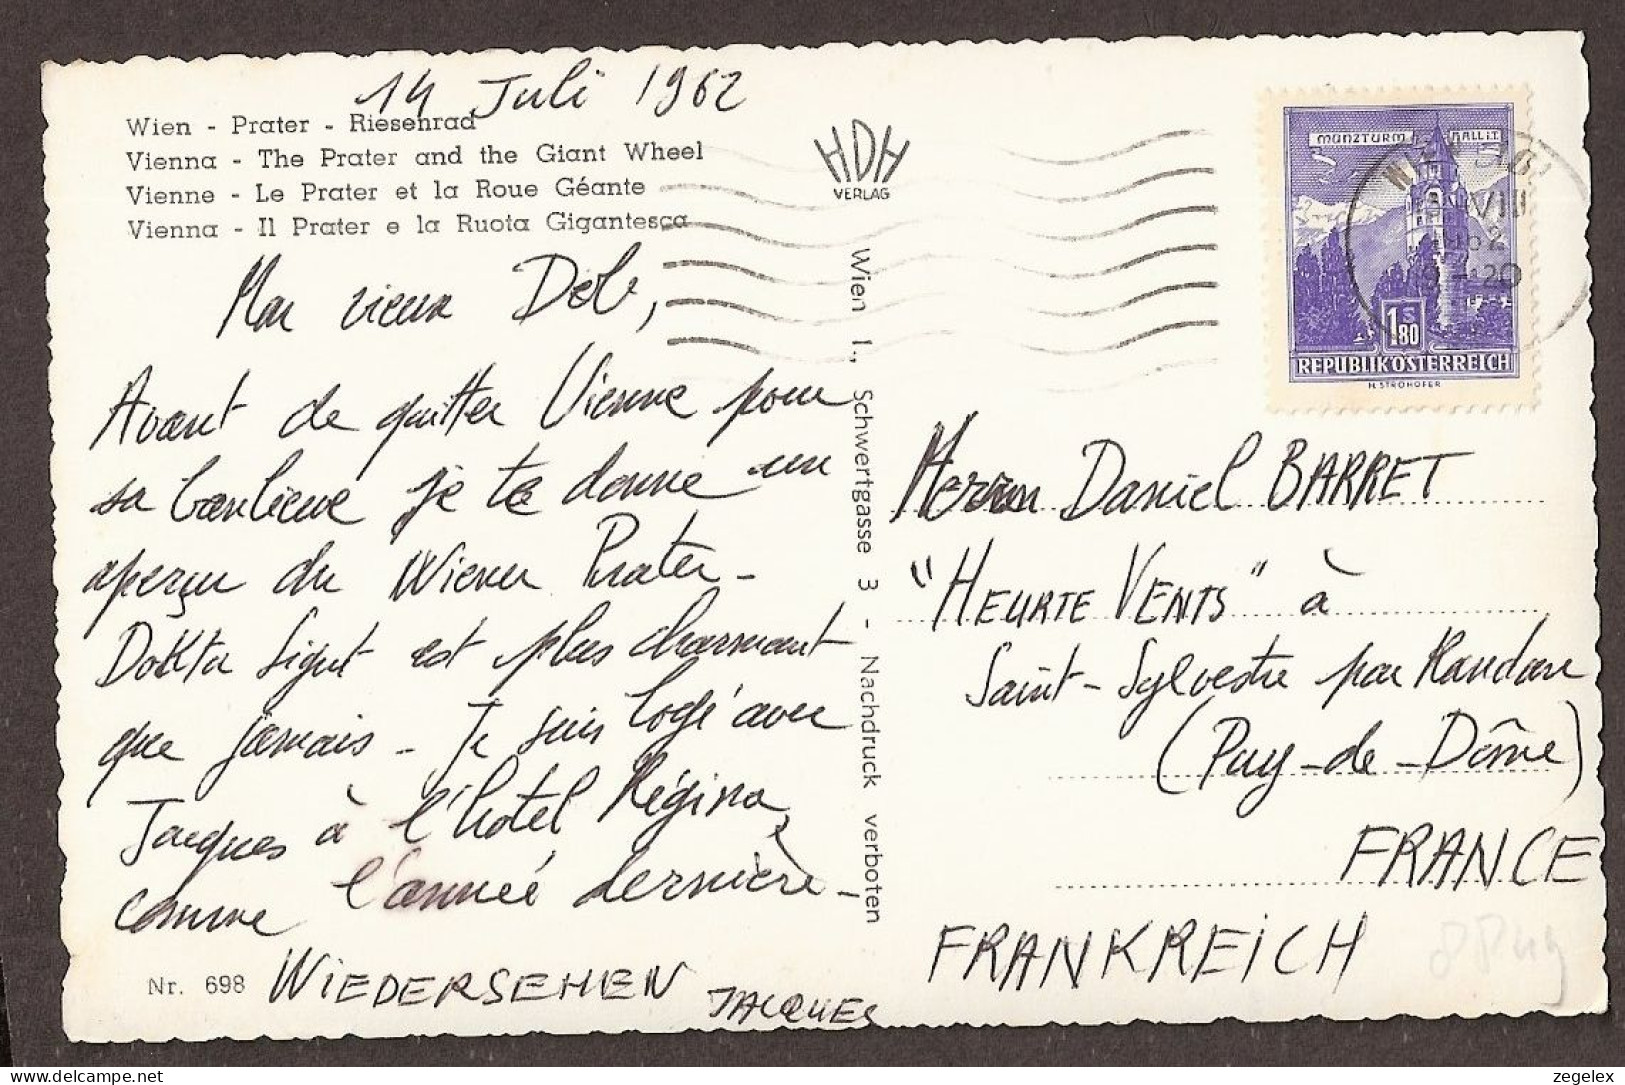 14 Juli 1962
Wien - Prater - Riesenrad
Vienna - The Prater and the Giant Wheel
Vienne - Le Prater et la Roue Géante
Vienna - Il Prater e la Ruota Gigantesca
Mon vieux Dob,
Avant de quitter Vienne pour
sa banlieue je te donne un
aperçu du Wiener Prater -
Doktor est plus charmant
que jamais - Je suis logé avec
Jacques à l'hotel Régina,
comme l'année dernière -
WIEDERSEHEN
JACQUES
Nr. 698
HDH
VERLAG
Wien I., Schwertgasse 3 - Nachdruck verboten
MÜNZTURM HALL i.T.
1 S 80
REPUBLIK ÖSTERREICH
H. STROHOFER
WIEN
VII
1962
-20
Herrn Daniel BARRET
"HEURTE VENTS" à
Saint-Sylvestre par Randan
(Puy-de-Dôme)
FRANCE
FRANKREICH
zegelex